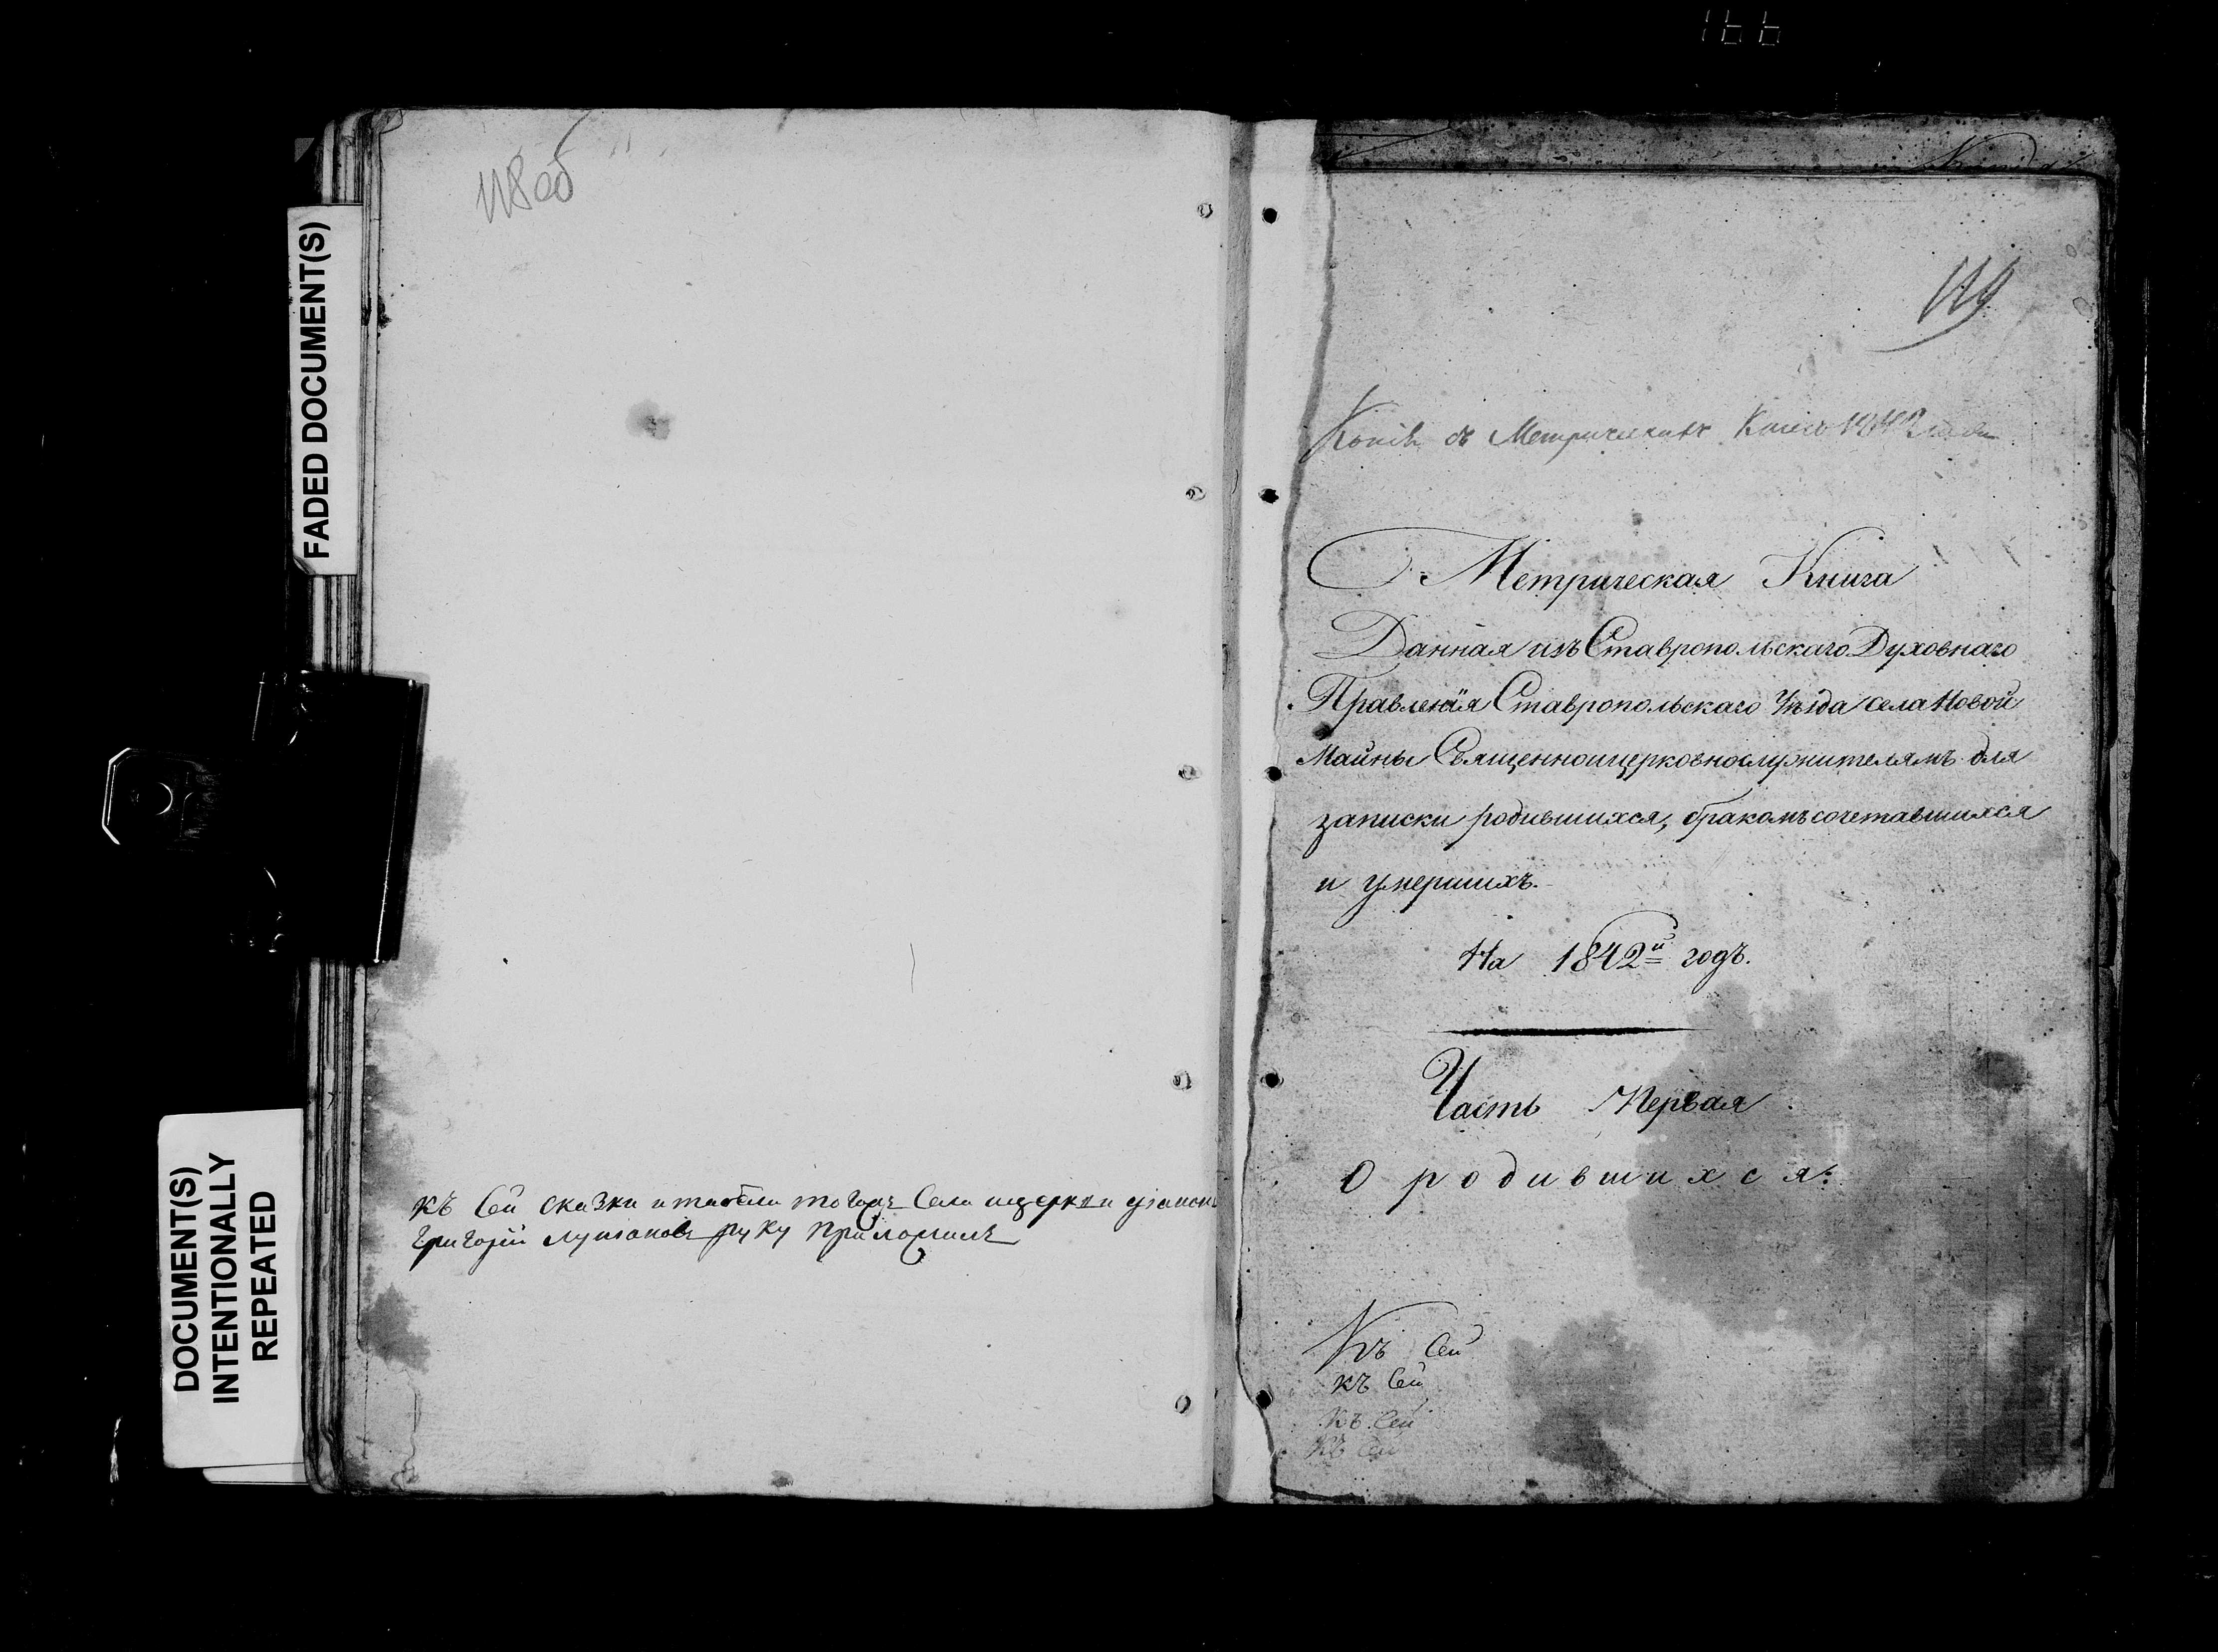 166
FADED DOCUMENT(S)
DOCUMENT(S)
INTENTIONALLY
REPEATED
118 об
къ сей сказки и табели тогожъ села
Григорій руку приложилъ
119
Копія съ Метрическихъ Книгъ 1842 года
Метрическая Книга
Данная изъ Ставропольскаго Духовнаго
Правленія Ставропольскаго Уѣзда села Новой
Майны Священноицерковнослужителямъ для
записки родившихся, бракомъ сочетавшихся
и умершихъ.
На 1842й годъ.
Часть Первая
О родившихся.
Къ Сей
къ Сей
Къ Сей
Къ Сей